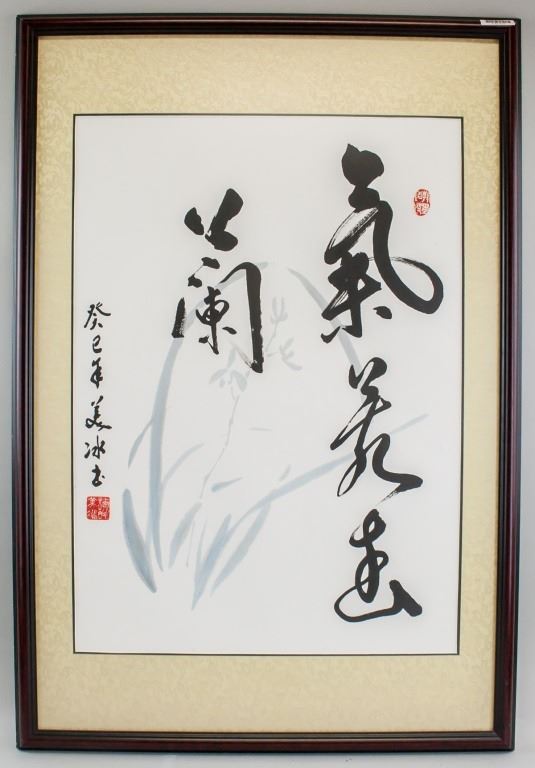 氣若幽
蘭
癸巳年美冰书